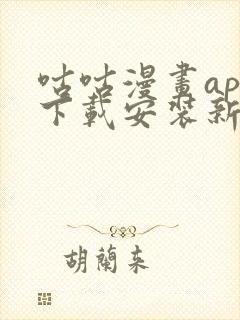 咕咕漫畫ap
下載安裝新
胡蘭束